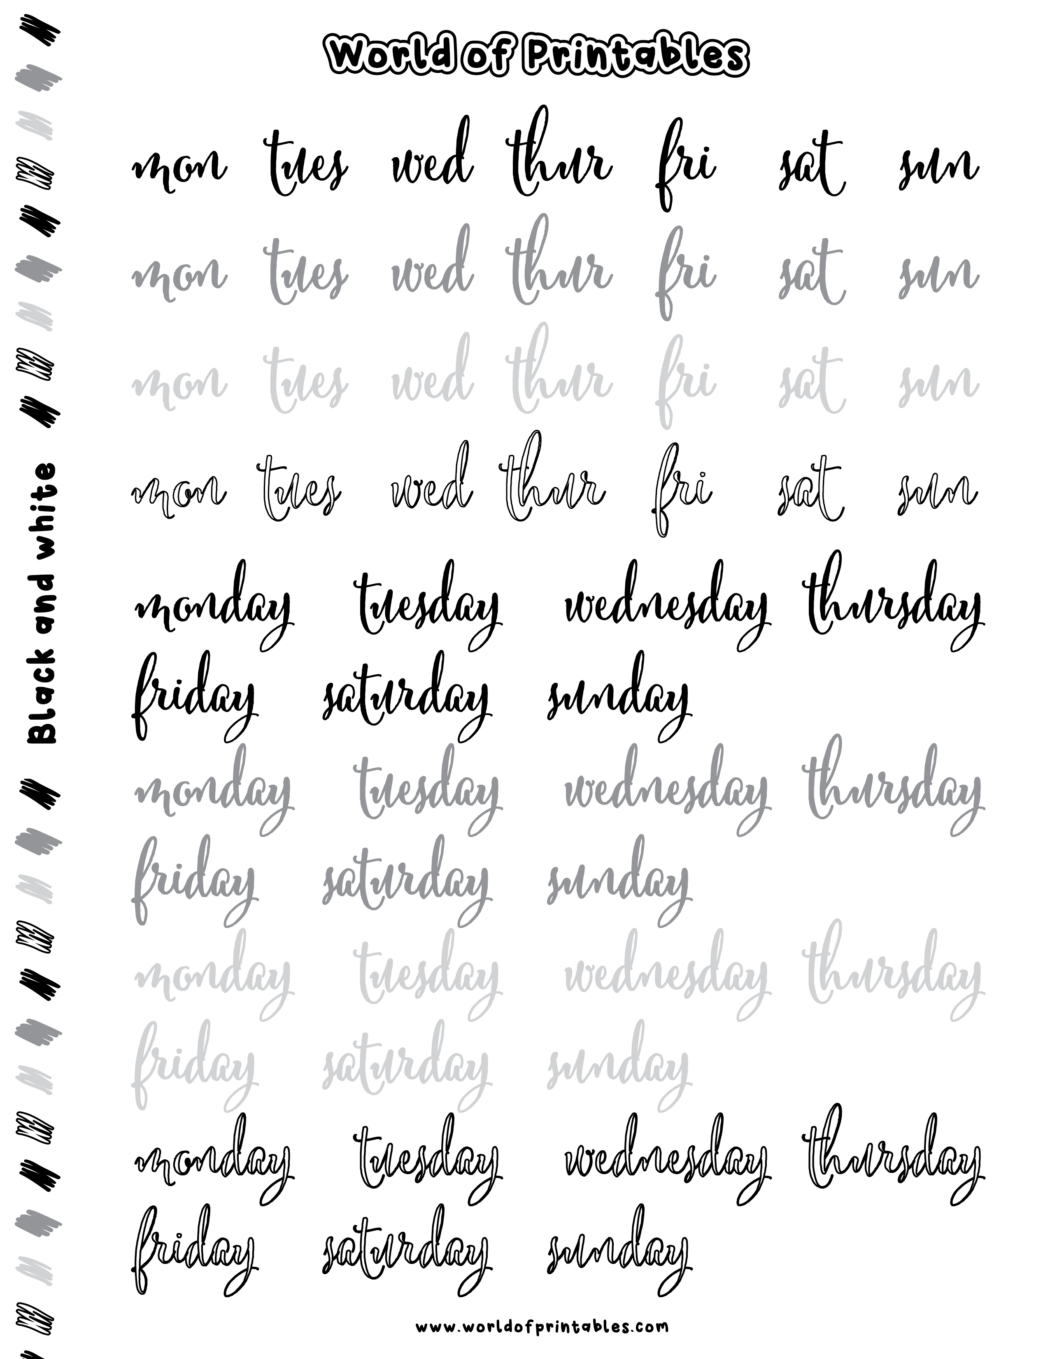 World of Printables
mon tues wed thur fri sat sun
mon tues wed thur fri sat sun
mon tues wed thur fri sat sun
mon tues wed thur fri sat sun
Black and white
monday tuesday wednesday thursday
friday saturday sunday
monday tuesday wednesday thursday
friday saturday sunday
monday tuesday wednesday thursday
friday saturday sunday
monday tuesday wednesday thursday
friday saturday sunday
www.worldofprintables.com